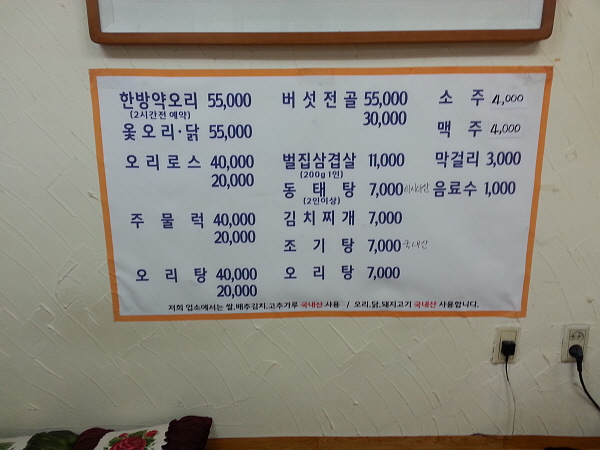 한방약오리 55,000
(2시간전 예약)
옻오리·닭 55,000
오리로스 40,000
20,000
주물럭 40,000
20,000
오리탕 40,000
20,000
버섯전골 55,000
30,000
벌집삼겹살 11,000
(200g 1인)
동태탕 7,000 러시아산
(2인이상)
김치찌개 7,000
조기탕 7,000 국내산
오리탕 7,000
소주 4,000
맥주 4,000
막걸리 3,000
음료수 1,000
저희 업소에서는 쌀,배추김치,고추가루 국내산 사용 / 오리,닭,돼지고기 국내산 사용합니다.